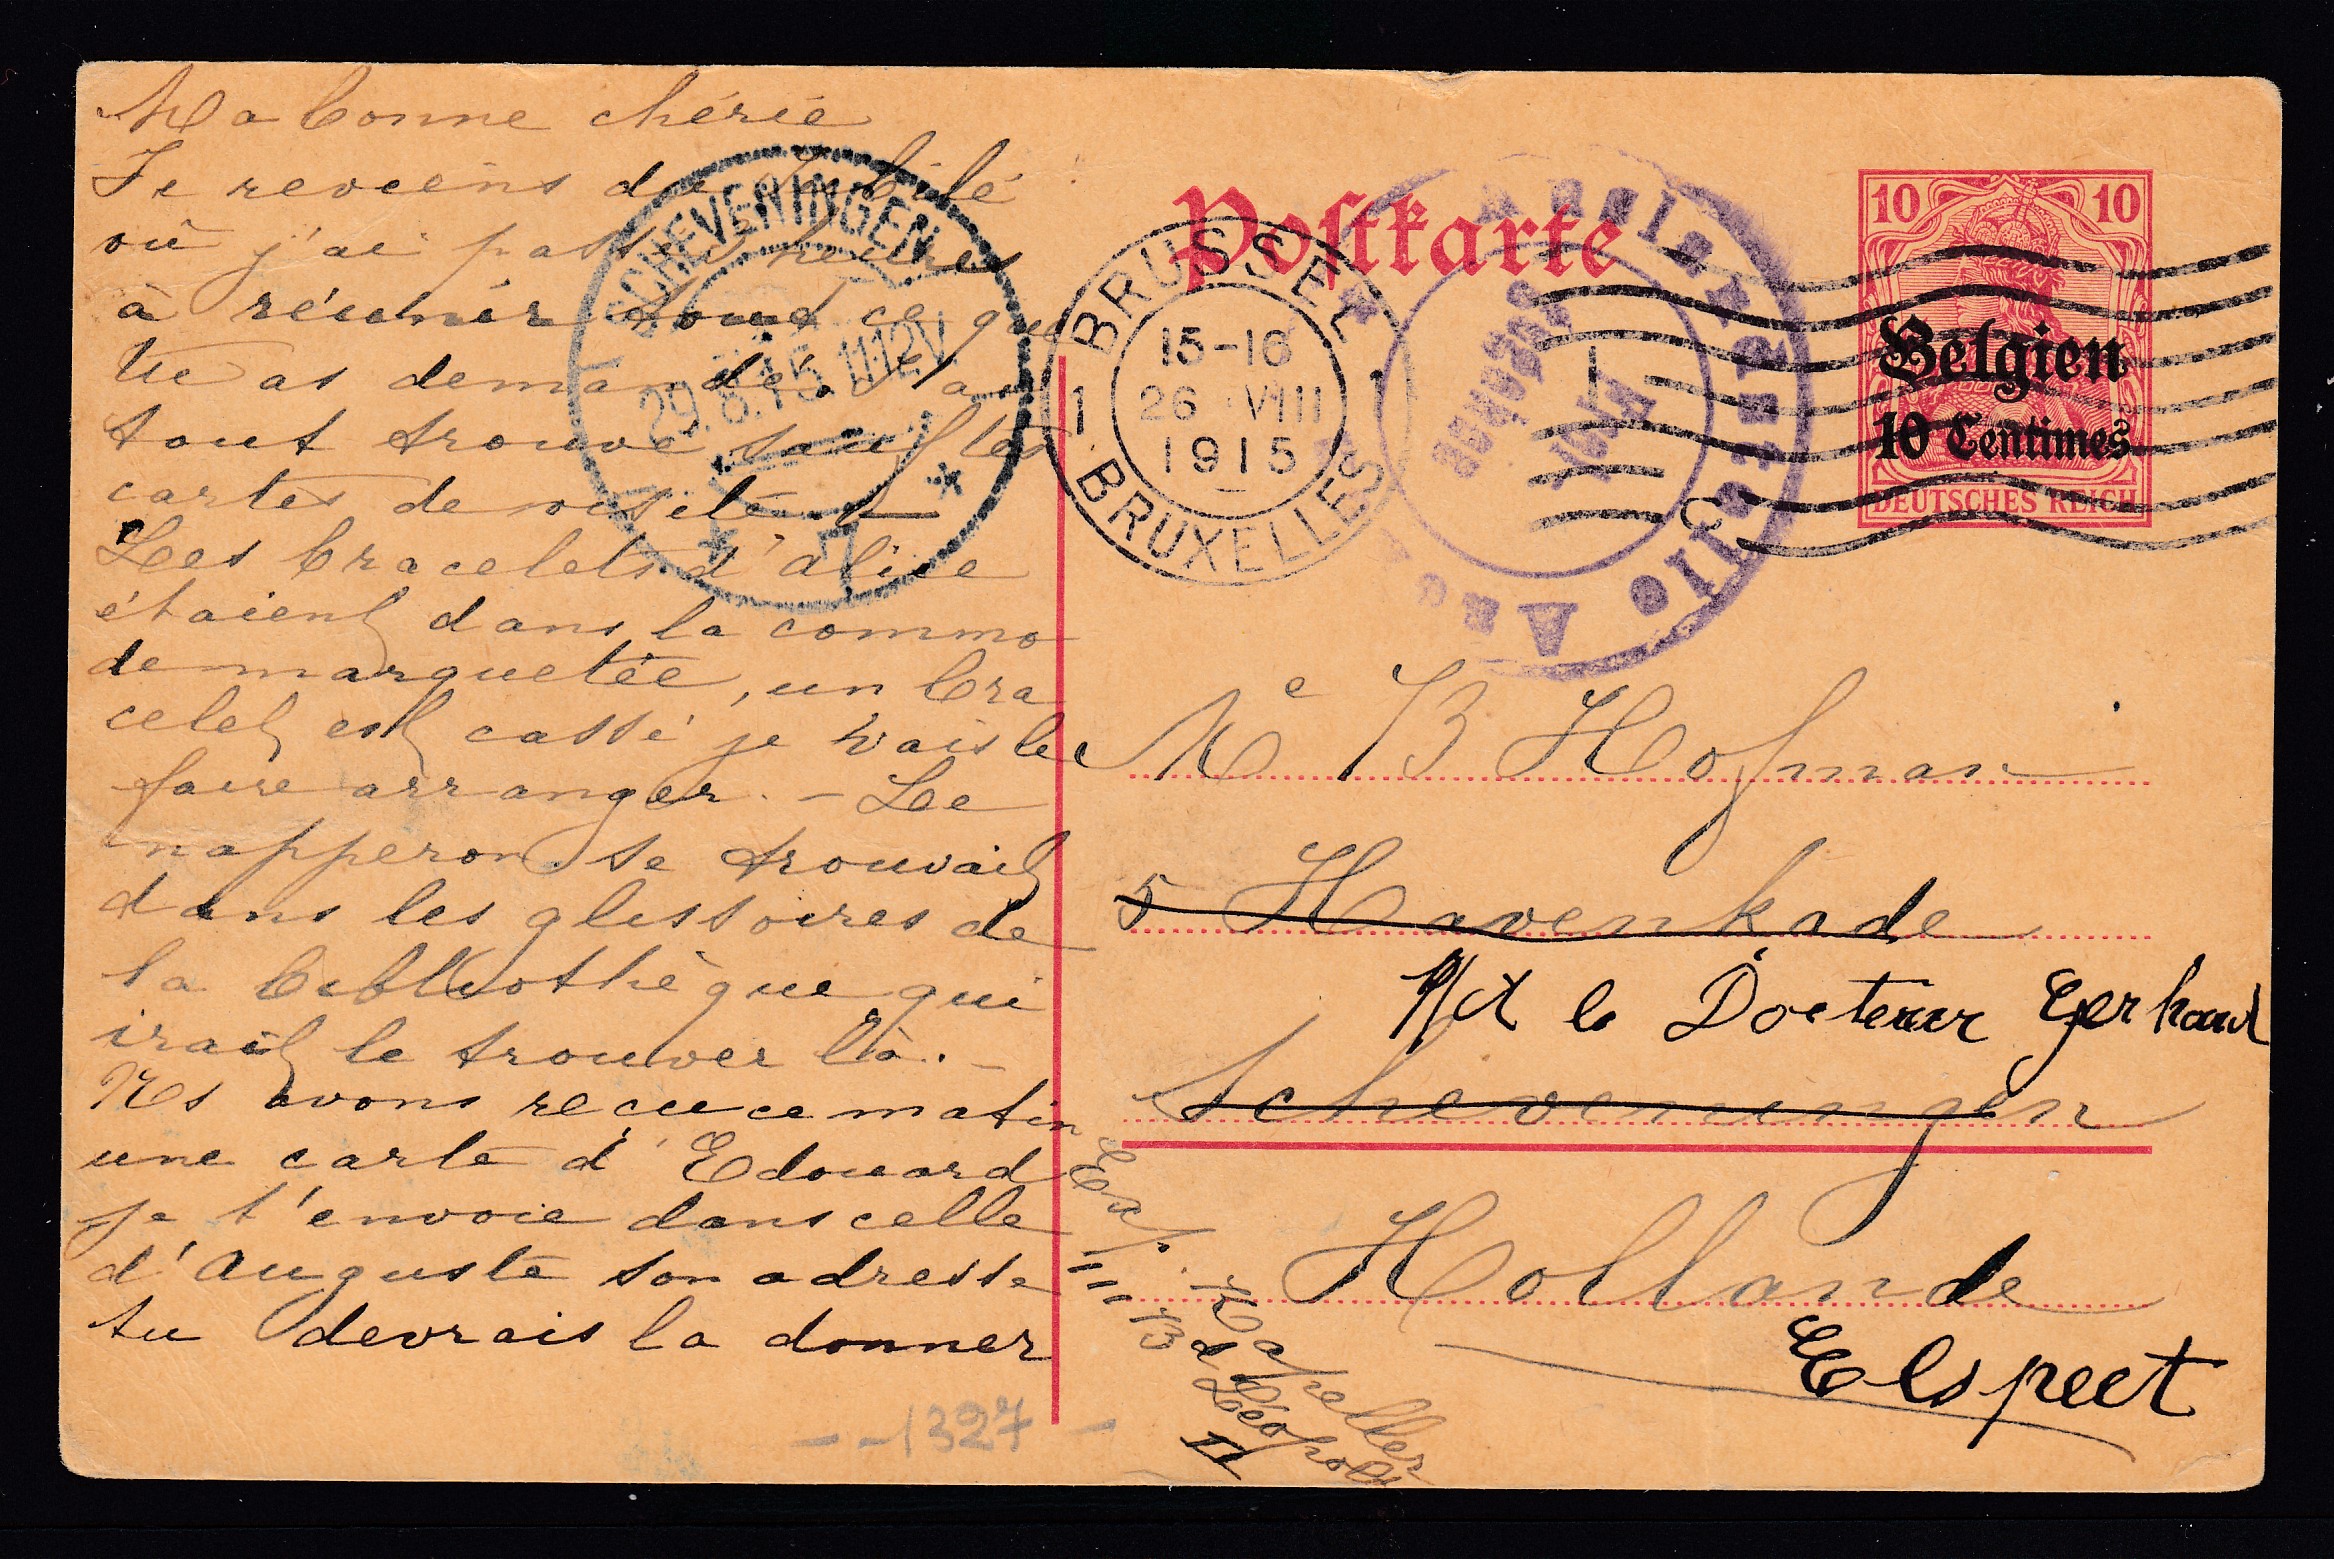 Ma bonne chérie
Je reviens du Jubilé
où j'ai passé heures
à réunir tout ce que
tu as demandé. J'ai
tout trouvé sauf les
cartes de visite. —
Les bracelets d'Alice
étaient dans la commo
de marquetée, un bra
celet est cassé je vais le
faire arranger. — Le
napperon se trouvait
dans les glissoires de
la bibliothèque qui
irait le trouver là. —
Ns avons reçu ce matin
une carte d'Edouard
je t'envoie dans celle
d'Auguste son adresse
tu devrais la donner
- - 1327 -
SCHEVENINGEN
29.8.15 11-12V
* 7 *
Postkarte
BRUSSEL
15-16
26 VIII
1915
1 1
BRUXELLES
Auslandstelle
10 10
Belgien
10 Centimes
DEUTSCHES REICH
Me B Hofman
5 Havenkade
le Docteur Gerhard
Scheveningen
Hollande
Elspeet
Exp.
Kapeller
13 Bd Léopold
II